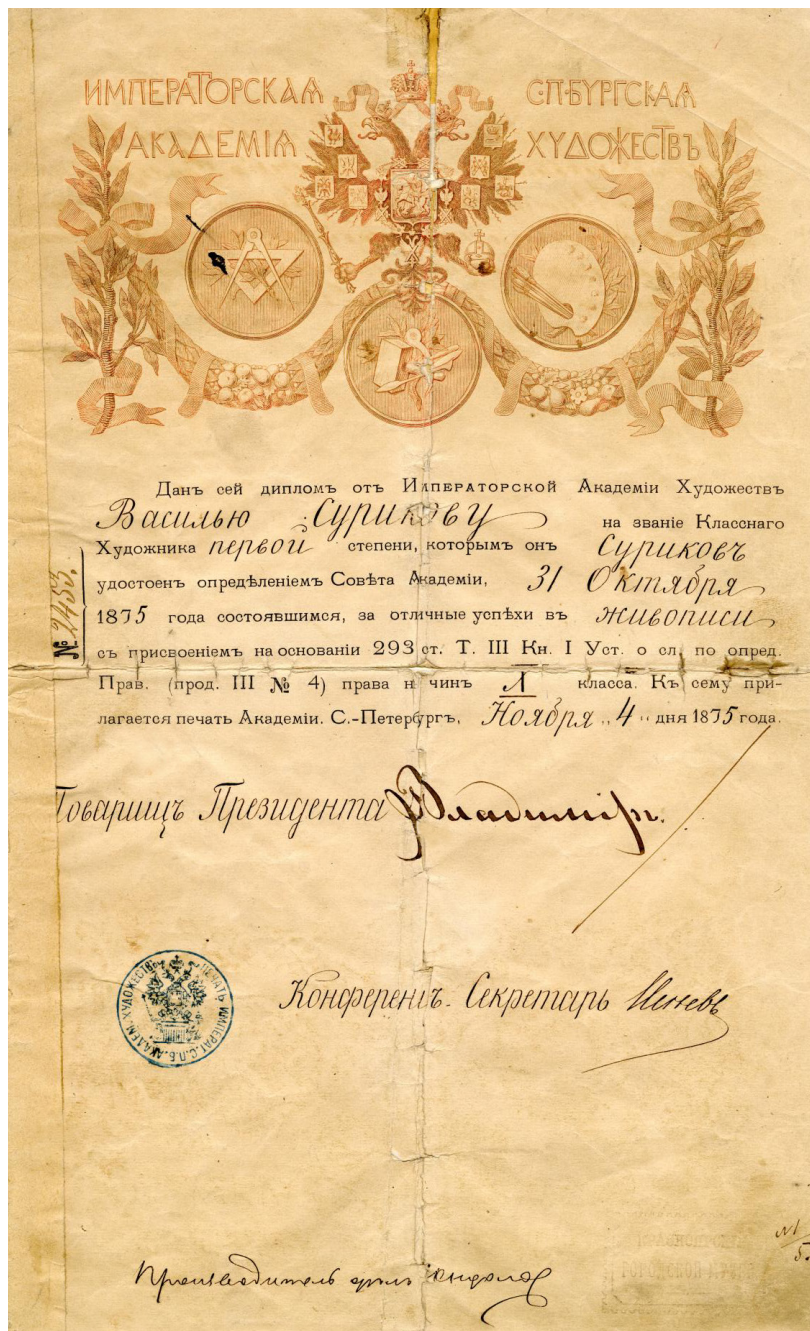 ИМПЕРАТОРСКАЯ С.П-БУРГСКАЯ
АКАДЕМІЯ ХУДОЖЕСТВЪ
Данъ сей дипломъ отъ Императорской Академіи Художествъ
Василью Сурикову на званіе Класснаго
Художника первой степени, которымъ онъ Суриковъ
удостоенъ опредѣленіемъ Совѣта Академіи, 31 Октября
1875 года состоявшимся, за отличные успѣхи въ живописи
съ присвоеніемъ на основаніи 293 ст. Т. III Кн. I Уст. о сл. по опред.
Прав. (прод. III № 4) права н чинъ X класса. Къ сему при-
лагается печать Академіи. С.-Петербургъ, Ноября „4" дня 1875 года.
№ 2453.
Товарищъ Президента Владиміръ.
ПЕЧАТЬ ИМПЕРАТ. С.П.Б. АКАДЕМ. ХУДОЖЕСТВЪ
Конференцъ-Секретарь Исѣевъ
Производитель дѣлъ